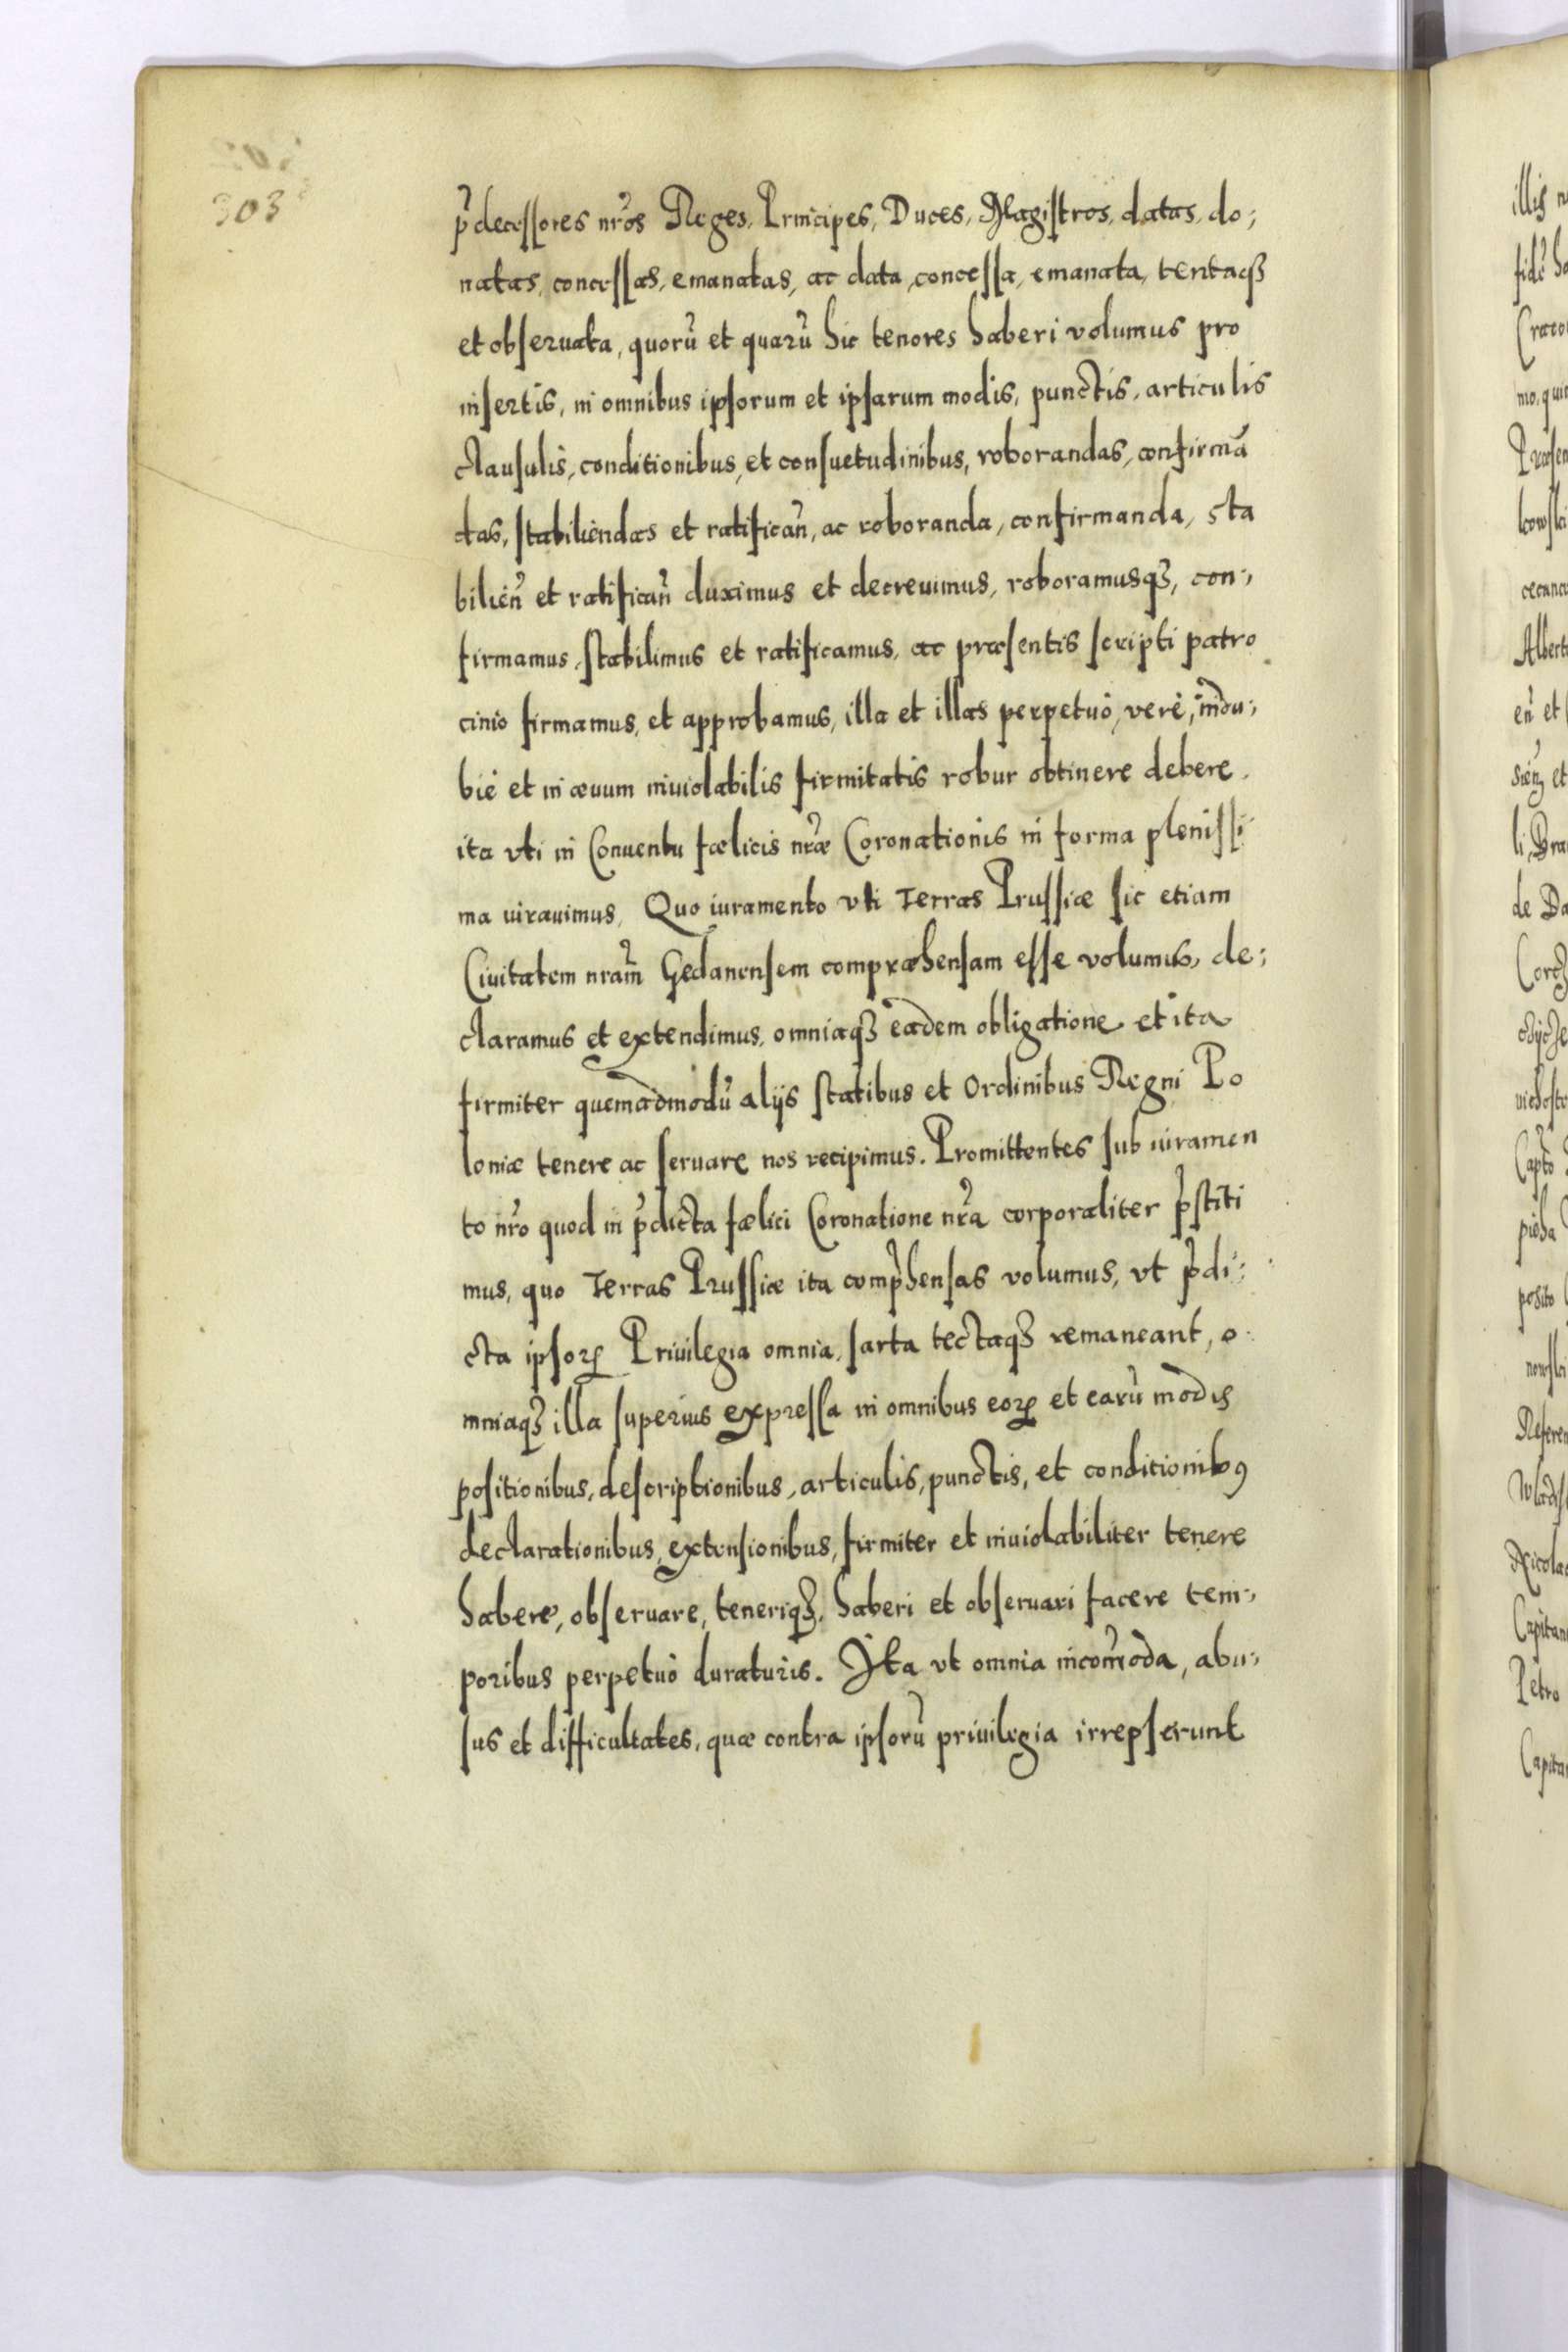 303
p̃decessores nr̃os Reges, Principes, Duces, Magistros, datas, do;
natas, concessas, emanatas, ac data, concessa, emanata, tentaqȝ
et obseruata, quorũ et quarũ hic tenores haberi volumus pro
insertis, in omnibus ipsorum et ipsarum modis, punctis, articulis
clausulis, conditionibus, et consuetudinibus, roborandas, confirmã
das, stabiliendas et ratificañ, ac roboranda, confirmanda, sta
bilieñ et ratificañ duximus et decreuimus, roboramusqȝ, con;
firmamus, stabilimus et ratificamus, ac præsentis scripti patro
cinio firmamus, et approbamus, illa et illas perpetuò, verè, indu;
biè et in æuum inuiolabilis firmitatis robur obtinere debere.
ita vti in Conuentu fœlicis nr̃æ Coronationis in forma plenissi
ma iurauimus. Quo iuramento vti Terras Prussiæ sic etiam
Ciuitatem nram̃ Gedanensem compræhensam esse volumus, de;
claramus et extendimus, omniaqȝ eadem obligatione et ita
firmiter quemadmodũ alijs statibus et Ordinibus Regni Po
loniæ tenere ac seruare nos recipimus. Promittentes sub iuramen
to nr̃o quod in p̃dicta fœlici Coronatione nr̃a corporaliter p̃stiti
mus, quo Terras Prussiæ ita comp̃hensas volumus, vt p̃di;
cta ipsoꝝ Priuilegia omnia, sarta tectaqȝ remaneant, o
mniaqȝ illa superius expressa in omnibus eoꝝ et earũ modis
positionibus, descriptionibus, articulis, punctis, et conditionibꝰ
declarationibus, extensionibus, firmiter et inuiolabiliter tenere
habere, obseruare, teneriqȝ, haberi et obseruari facere tem;
poribus perpetuò duraturis. Ita vt omnia incom̃oda, abu;
sus et difficultates, quæ contra ipsorũ priuilegia irrepserunt